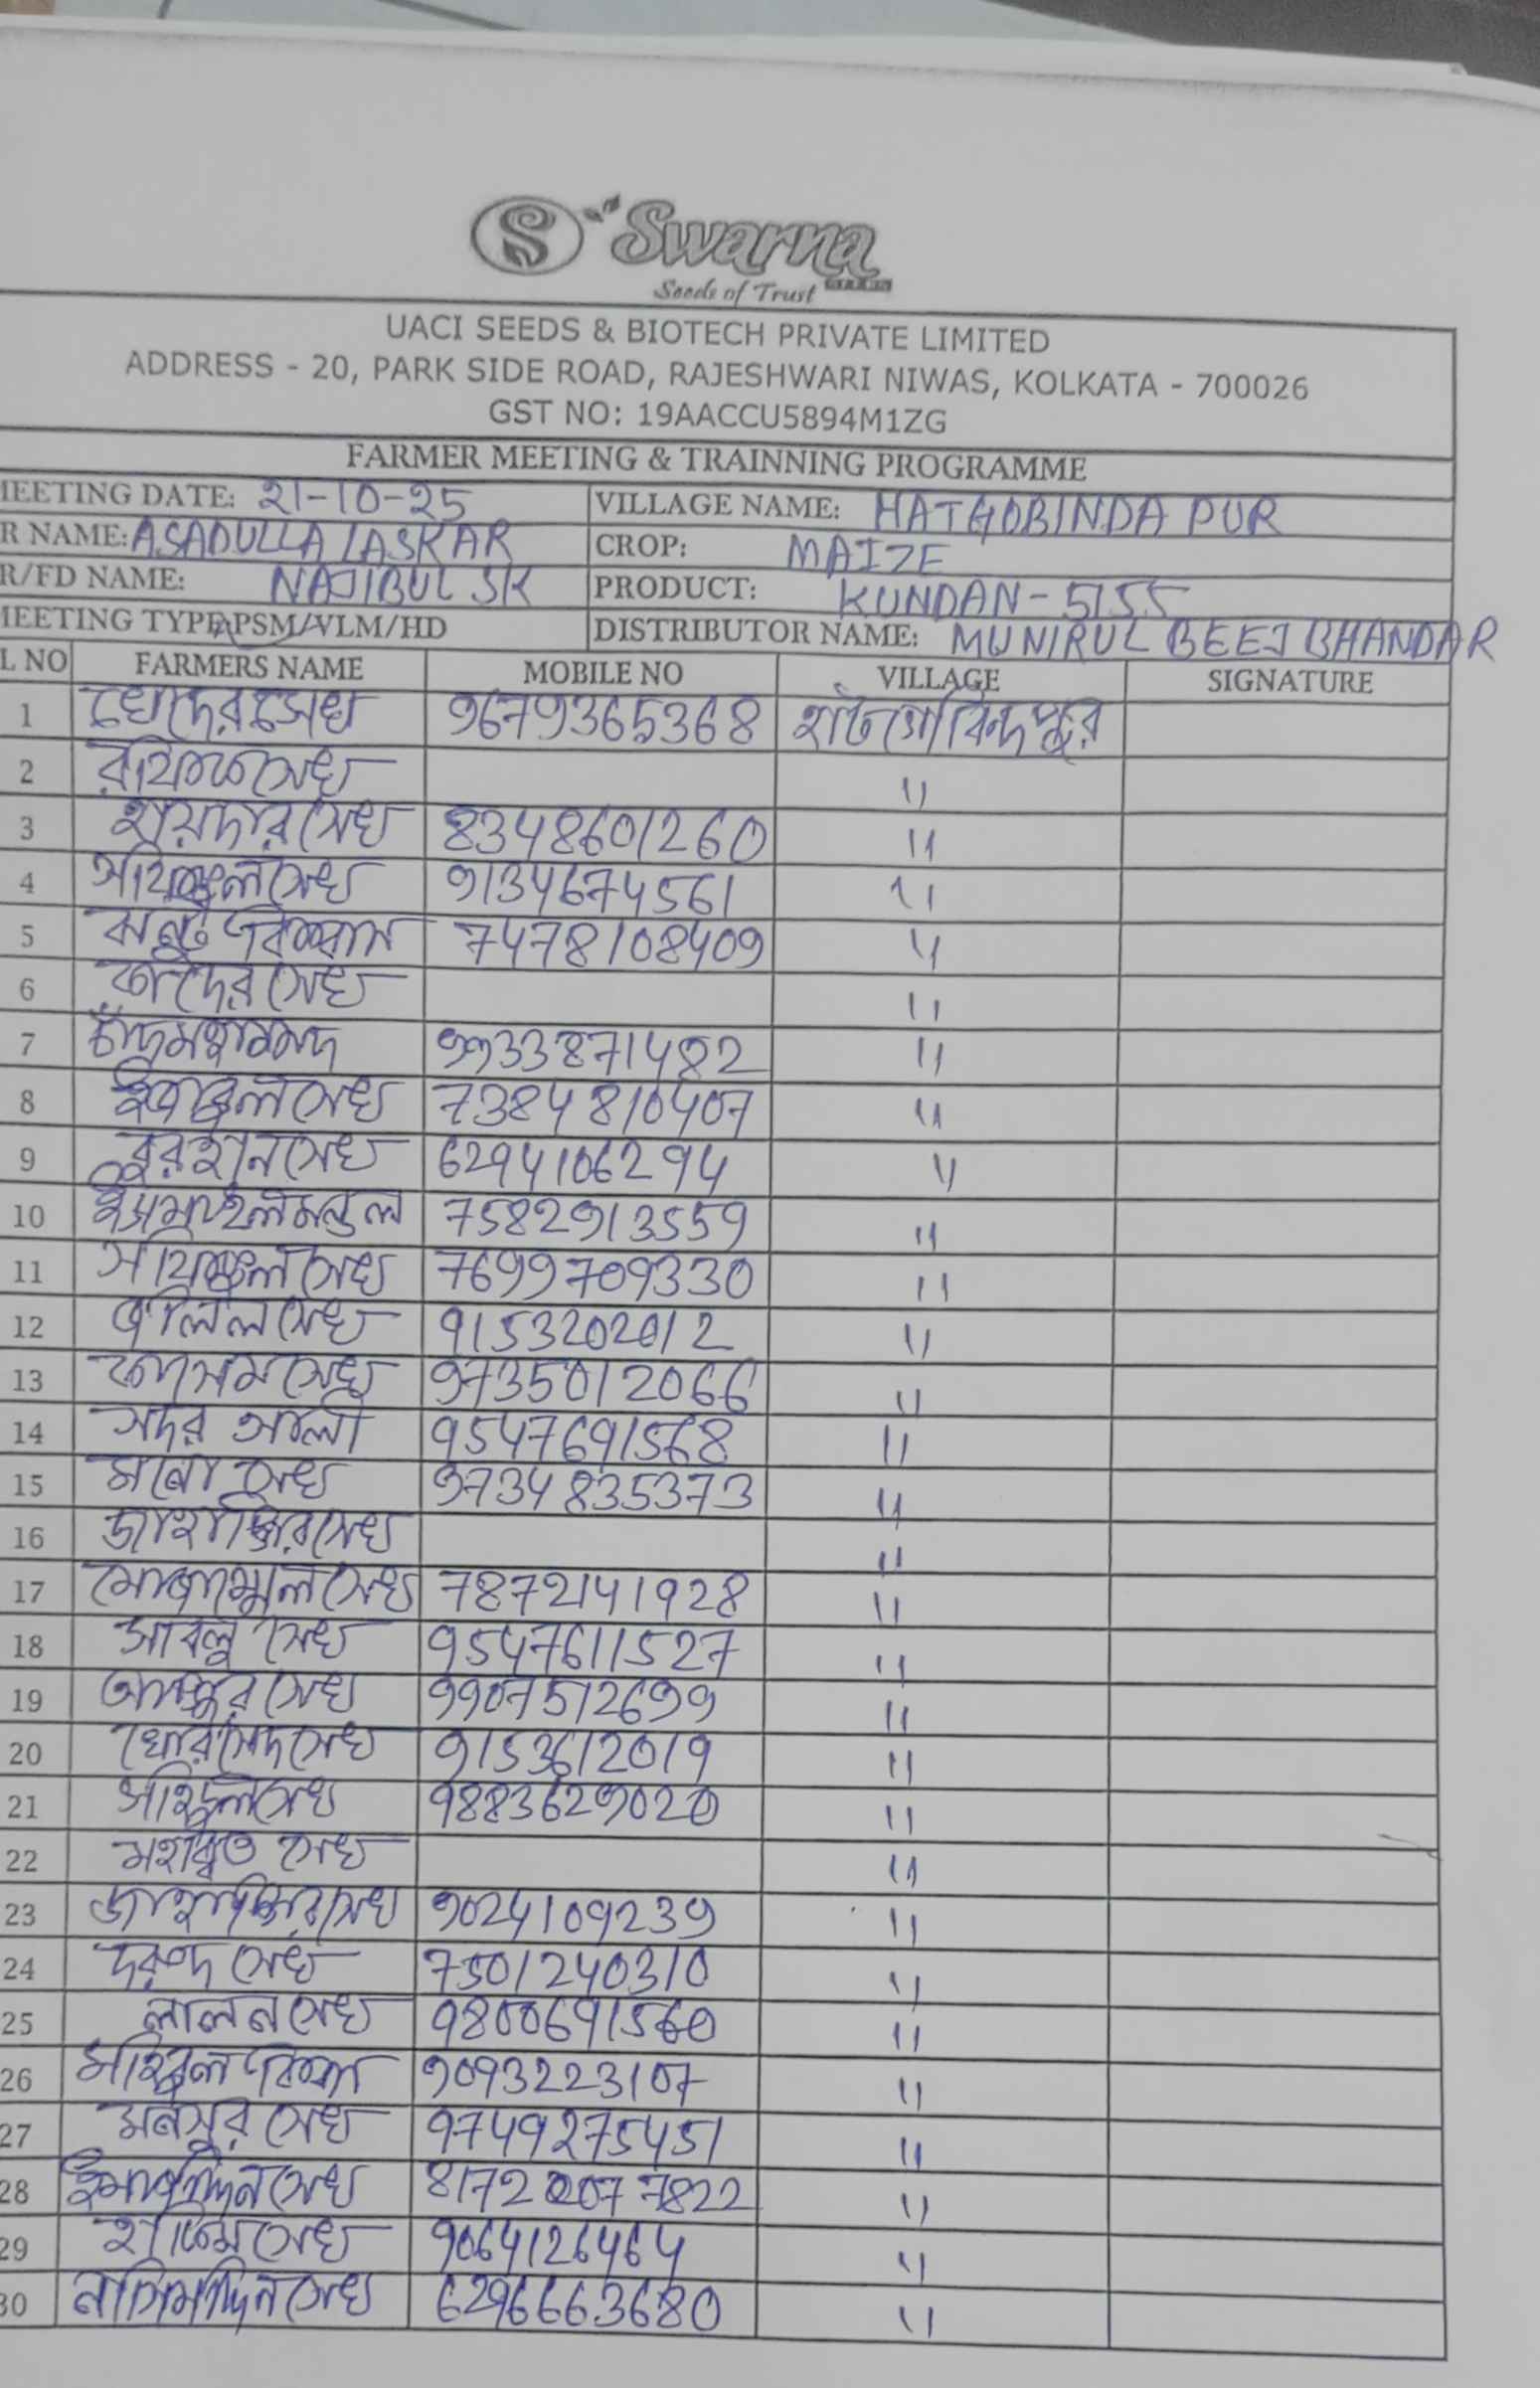 Swarna
Seeds of Trust
UACI SEEDS & BIOTECH PRIVATE LIMITED
ADDRESS - 20, PARK SIDE ROAD, RAJESHWARI NIWAS, KOLKATA - 700026
GST NO: 19AACCU5894M1ZG
FARMER MEETING & TRAINNING PROGRAMME
MEETING DATE: 21-10-25 VILLAGE NAME: HATGOBINDA PUR
R NAME: ASADULLA LASKAR CROP: MAIZE
R/FD NAME: NAJIBUL SK PRODUCT: KUNDAN-5155
MEETING TYPE: PSM/VLM/HD DISTRIBUTOR NAME: MUNIRUL BEEJ BHANDAR
L NO FARMERS NAME MOBILE NO VILLAGE SIGNATURE
1 খোদের সেখ 9679365368 হাটগোবিন্দপুর
2 সেখ 〃
3 হায়দার সেখ 8348601260 〃
4 সেখ 9134674561 〃
5 ঝন্টু বিশ্বাস 7478108409 〃
6 কাদের সেখ 〃
7 চাঁদমহাম্মদ 9933871482 〃
8 সেখ 7384810407 〃
9 বুরহান সেখ 6294106294 〃
10 ইসমাইল মন্ডল 7582913559 〃
11 সেখ 7699709330 〃
12 জলিল সেখ 9153202012 〃
13 কাসেম সেখ 9735012066 〃
14 সদর আলী 9547691568 〃
15 সেখ 9734835373 〃
16 জাহাঙ্গির সেখ 〃
17 মোজাম্মেল সেখ 7872141928 〃
18 সাবলু সেখ 9547611527 〃
19 সেখ 9907512699 〃
20 খোরসেদ সেখ 9153612019 〃
21 সেখ 9883629020 〃
22 মহাব্বত সেখ 〃
23 জাহাঙ্গির সেখ 9024109239 〃
24 দরুদ সেখ 7501240310 〃
25 লালন সেখ 9800691560 〃
26 9093223107 〃
27 মনসুর সেখ 9749275451 〃
28 সেখ 〃
29 হাকিম সেখ 9064126464 〃
30 নাসিমদ্দিন সেখ 6296663680 〃